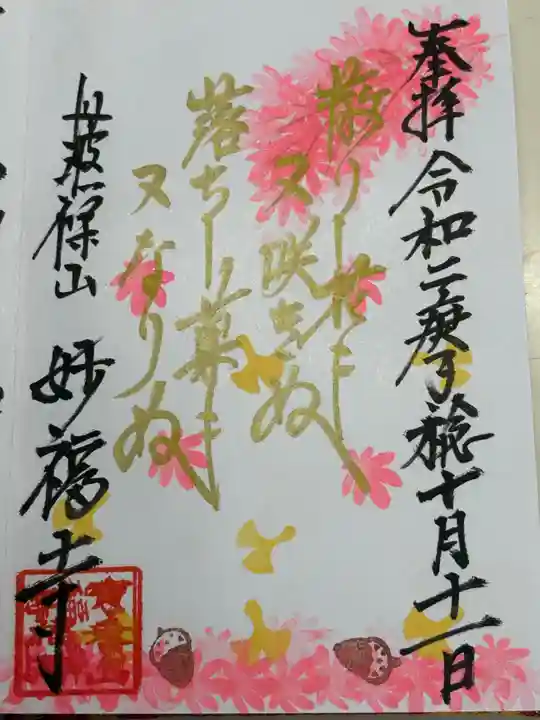 奉拝 令和二庚子稔十月十一日
散りし花
又咲きぬ
落ちし菓
又なりぬ
丹波篠山 妙福寺